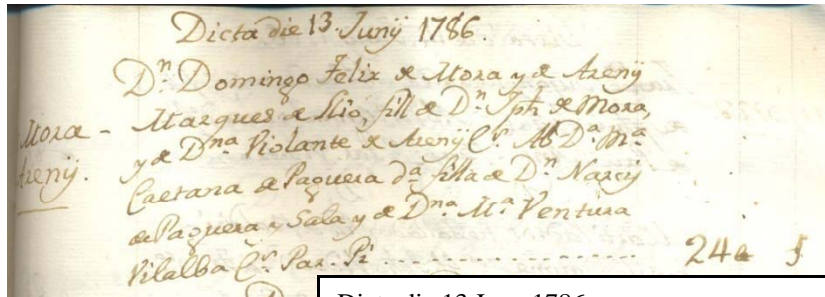 Dicta die 13. Junij 1786.
Dn. Domingo Felix de Mora y de Areny
Marques de Llió, fill de Dn. Jph de Mora,
Mora -
Areny.
y de Dna Violante de Areny Cs. Ab Da. Ma.
Caetana de Paguera da. filla de Dn. Narcis
de Paguera y Sala y de Dna. Ma. Ventura
Vilalba Cs. Par. Pi ..................
24
Dicta die 13 Juny 1786